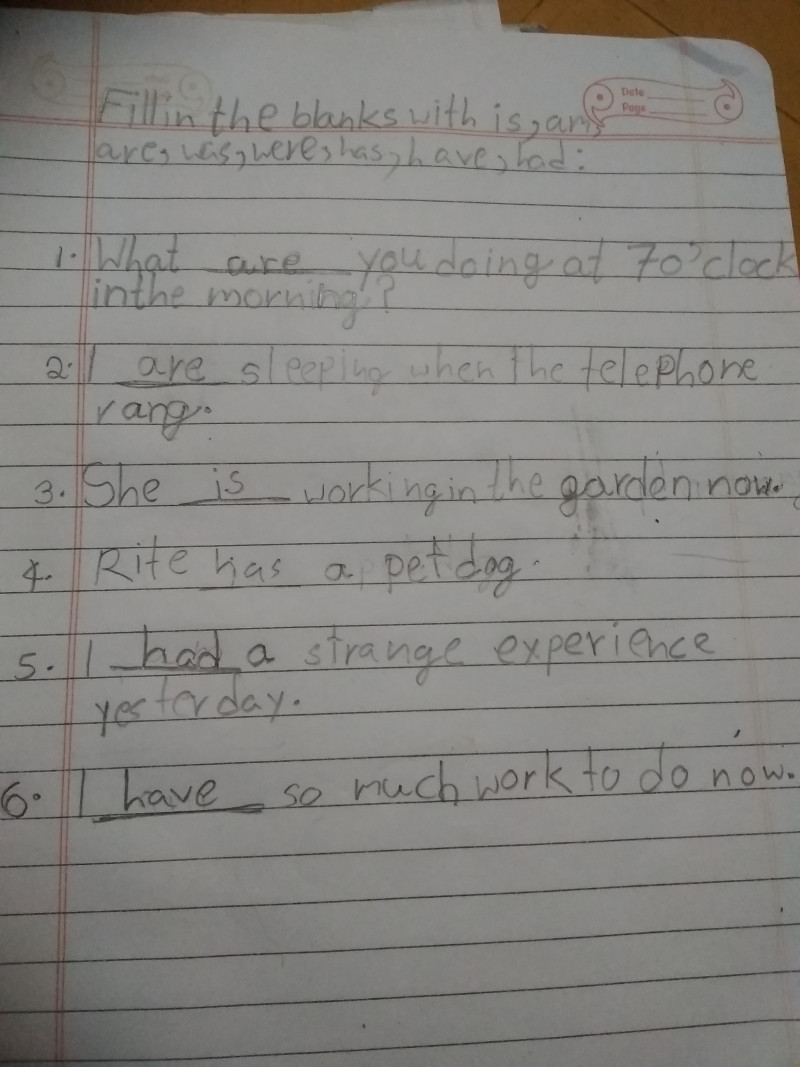 Date
Page
Fill in the blanks with is, am,
are, was, were, has, have, had:
1. What are you doing at 7 o'clock
in the morning?
2. I are sleeping when the telephone
rang.
3. She is working in the garden now.
4. Rite has a pet dog.
5. I had a strange experience
yesterday.
6. I have so much work to do now.